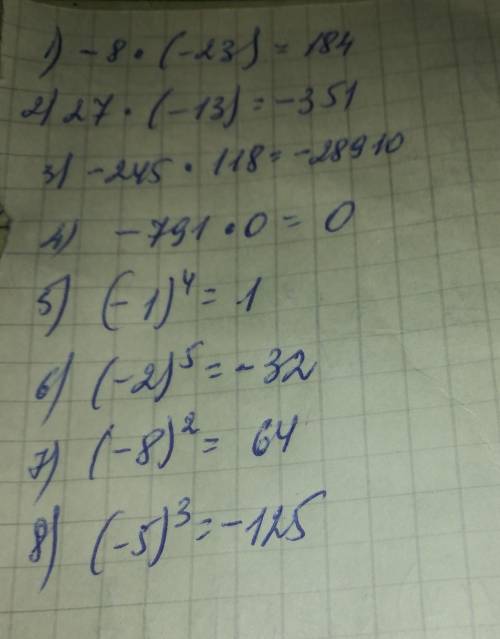 1) -8 · (-23) = 184
2) 27 · (-13) = -351
3) -245 · 118 = -28910
4) -791 · 0 = 0
5) (-1)⁴ = 1
6) (-2)⁵ = -32
7) (-8)² = 64
8) (-5)³ = -125